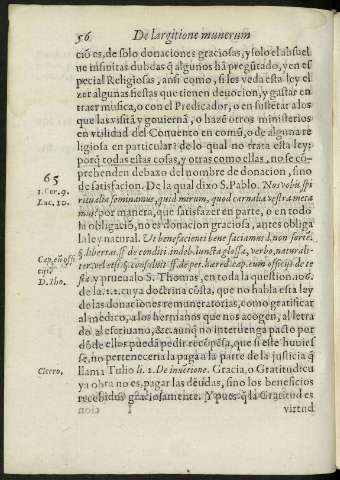 56 De largitione munerum
ciō es, de solo donaciones graciosas, y solo el absuel
ue infinitas dubdas q̃ algunos hā pregūtado, y en es
pecial Religiosas, ansi como, si les veda esta ley el
zer algunas fiestas que tienen deuocion, y gastar en
traer musica, o con el Predicador, o en sustētar a los
que las visitā y gouiernā, o hazē otros ministerios
en vtilidad del Conuento en comū, o de alguna re
ligiosa en particular: de lo qual no trata esta ley:
porq̃ todas estas cosas, y otras como ellas, no se cō-
prehenden baxo del nombre de donacion, sino
65
de satisfacion. De la qual dixo S. Pablo. Nos vobis spi
1. Cor. 9.
ritualia seminamus, quid mirum, quod carnalia vestra meta
Luc. 10.
mus? por manera, que satisfazer en parte, o en todo
la obligaciō, no es donacion graciosa, antes obliga
la ley natural. Vt benefacienti bene faciamus l. non
ter, vel
Cap.
cijs
D. Tho.
sta. y prueualo S. Thomas, en toda la question. 106.
de la .2.2. cuya doctrina costa, que no habla esta ley
de las donaciones remuneratorias, como gratificar
al medico, a los hermanos que nos acogen, al letra
do al escriuano, &c. aunq̃ no interuenga pacto por
dōde ellos pueda pedir recōpēsa, que si este huuies
se, no perteneceria la paga a la parte de la justicia q̃
Cicero.
llama Tulio li. 2. De inuetione. Gracia, o Gratitud: cu
ya obra no es, pagar las deudas, sino los beneficios
recebidos graciosamente. Y pues q̃ la Gratitud es
virtud